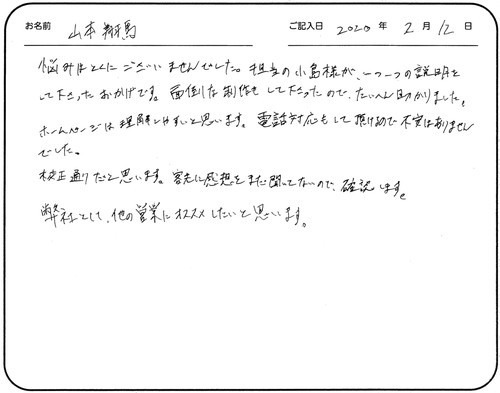 お名前 山本 翔馬 ご記入日 2020 年 2 月 12 日
悩みはとくにございませんでした。担当の小島様が、一つ一つの説明を
して下さったおかげです。面倒な制作もして下さったので、たいへん助かりました。
ホームページは理解しやすいと思います。電話対応もして頂けるので不安はありません
でした。
校正通りだと思います。客先に感想をまだ聞いてないので、確認します。
弊社として、他の営業にオススメしたいと思います。